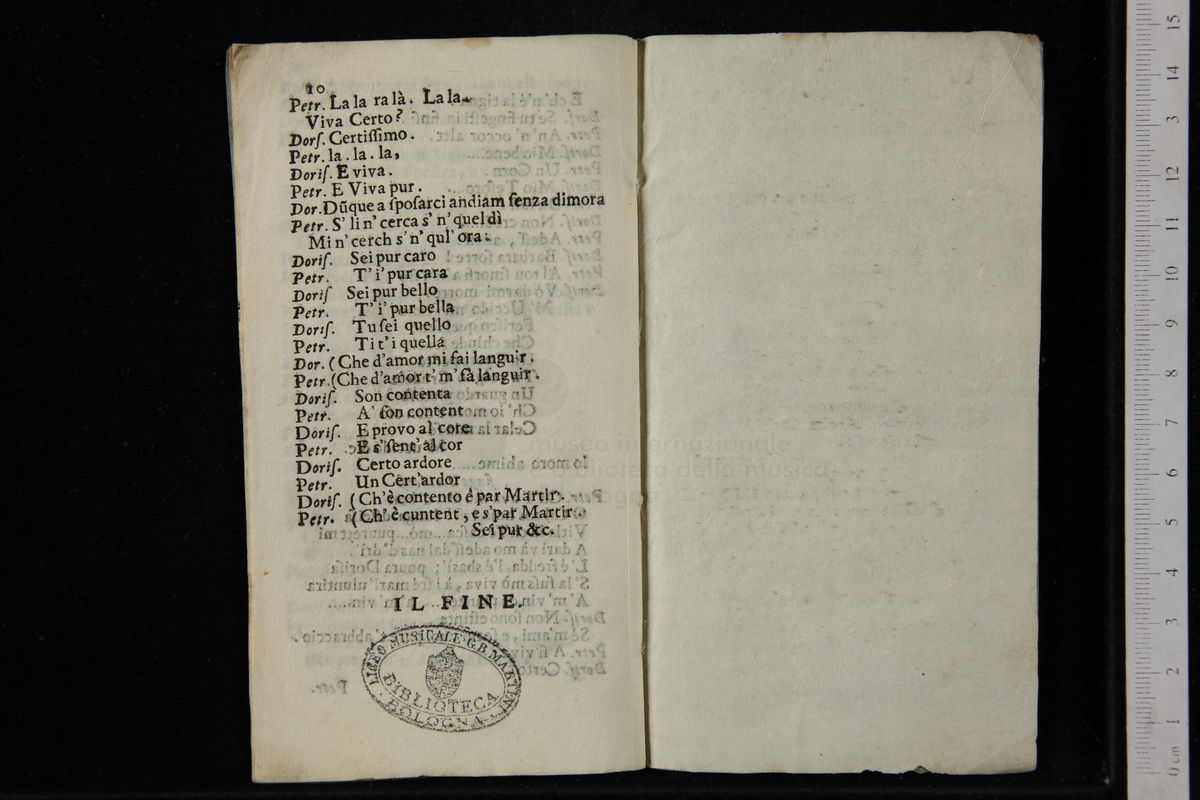 10
Petr. La la ra là. La la
Viva Certo?
Dorſ. Certiſſimo.
Petr. la. la. la,
Doriſ. E viva.
Petr. E Viva pur.
Dor. Dũque a ſpoſarci andiam ſenza dimora
Petr. S' li n' cerca s' n' quel dì
Mi n' cerch s' n' qul' ora.
Doriſ. Sei pur caro
Petr. T' i' pur cara
Doriſ Sei pur bello
Petr. T' i' pur bella
Doriſ. Tu ſei quello
Petr. Ti t' i quella
Dor. (Che d'amor mi fai languir.
Petr. (Che d'amor t' m' fà languir.
Doriſ. Son contenta
Petr. A' ſon content
Doriſ. E provo al core
Petr. E s' ſent' al cor
Doriſ. Certo ardore
Petr. Un Cert' ardor
Doriſ. (Ch' è contento é par Martir.
Petr. (Ch' è cuntent, e s' par Martir.
Sei pur &c.
IL FINE.
LICEO MUSICALE G.B. MARTINI
BIBLIOTECA
BOLOGNA
museo internazionale
biblioteca della musica
0 cm 1 2 3 4 5 6 7 8 9 10 11 12 3 14 15